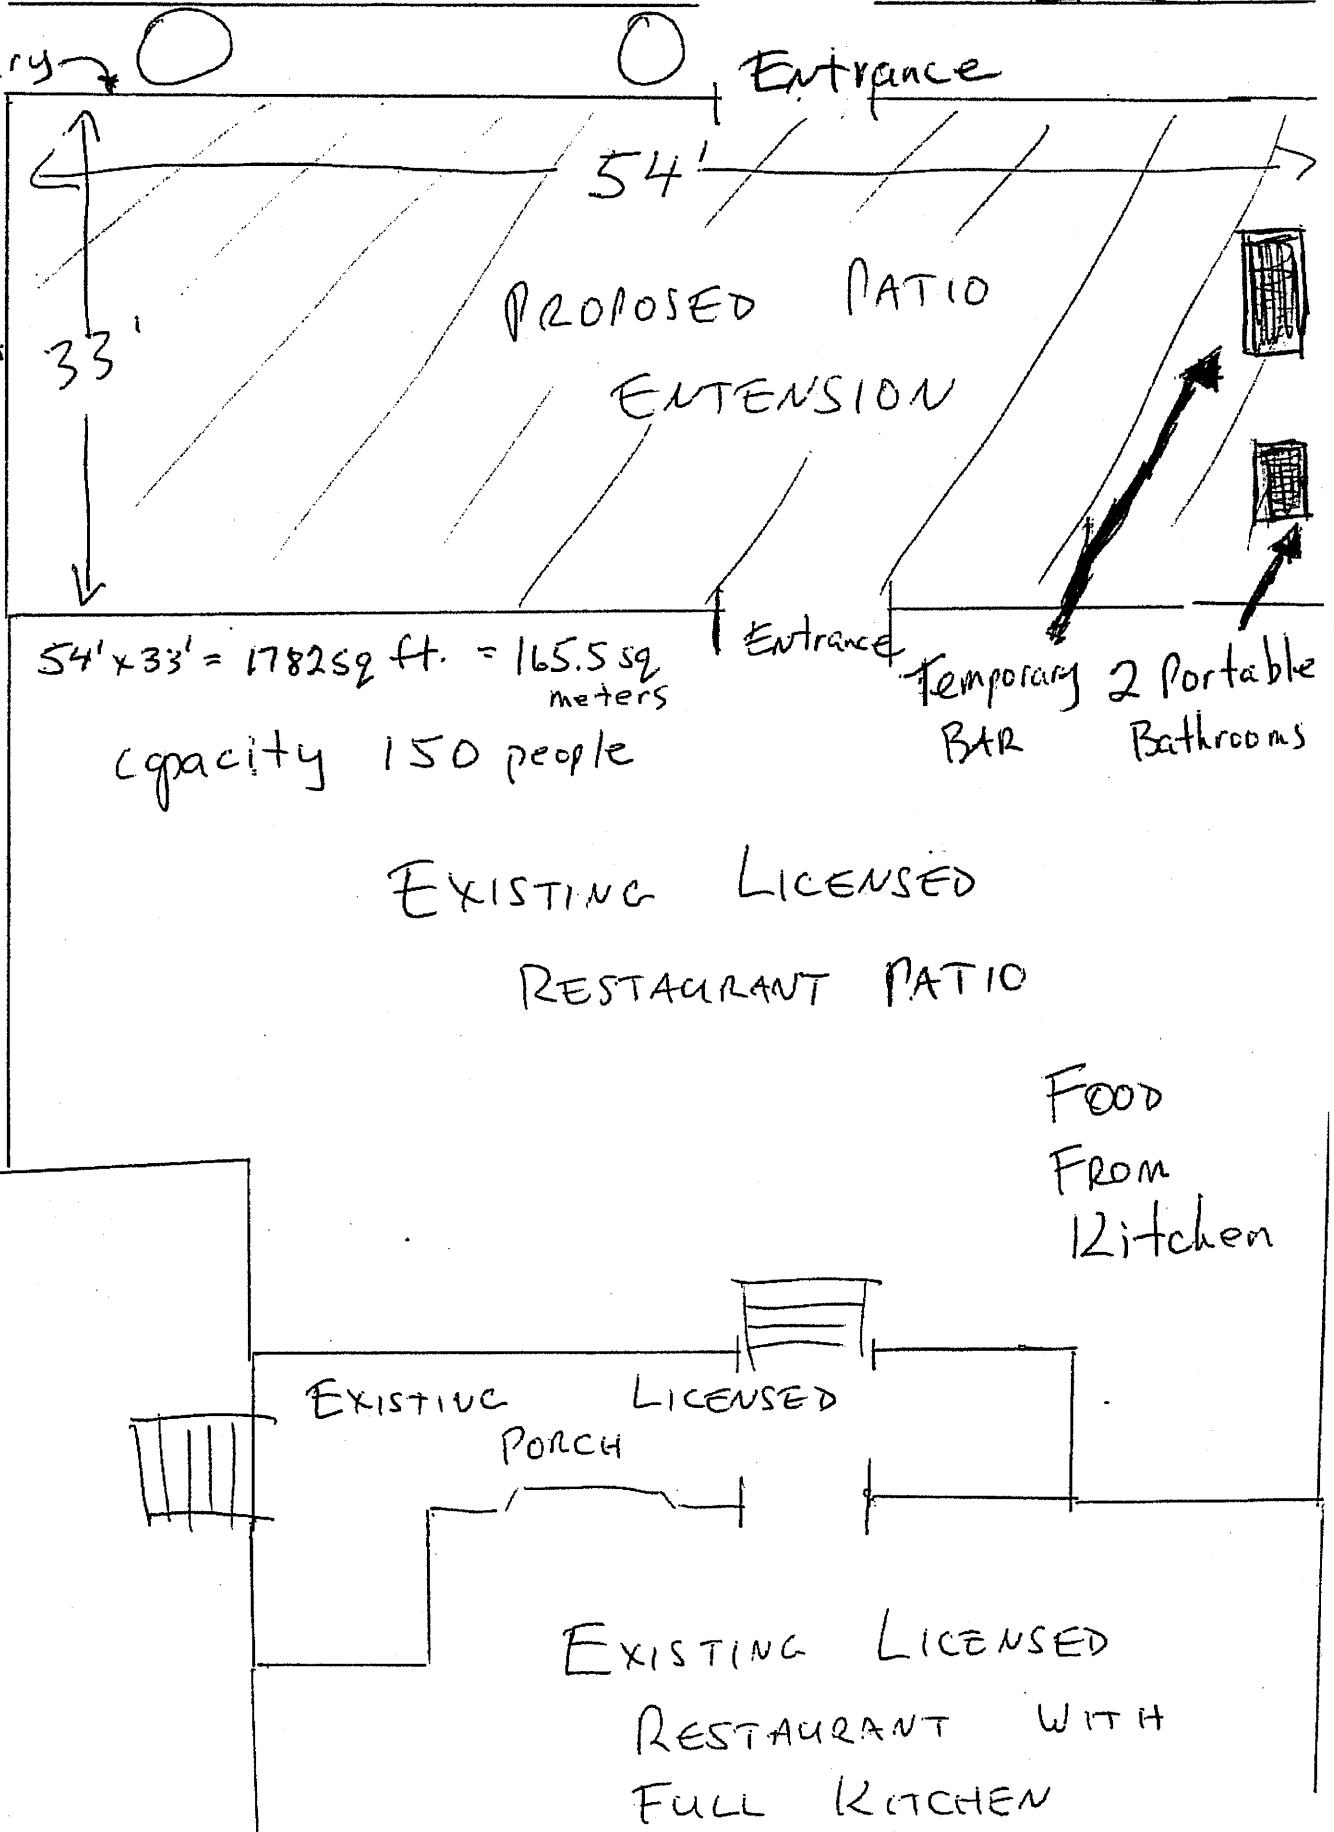 ry
Entrance
54'
33'
PROPOSED PATIO
ENTENSION
54' x 33' = 1782 sq ft. = 165.5 sq
meters
capacity 150 people
Entrance
Temporary
BAR
2 Portable
Bathrooms
EXISTING LICENSED
RESTAURANT PATIO
FOOD
FROM
Kitchen
EXISTING LICENSED
PORCH
EXISTING LICENSED
RESTAURANT WITH
FULL KITCHEN